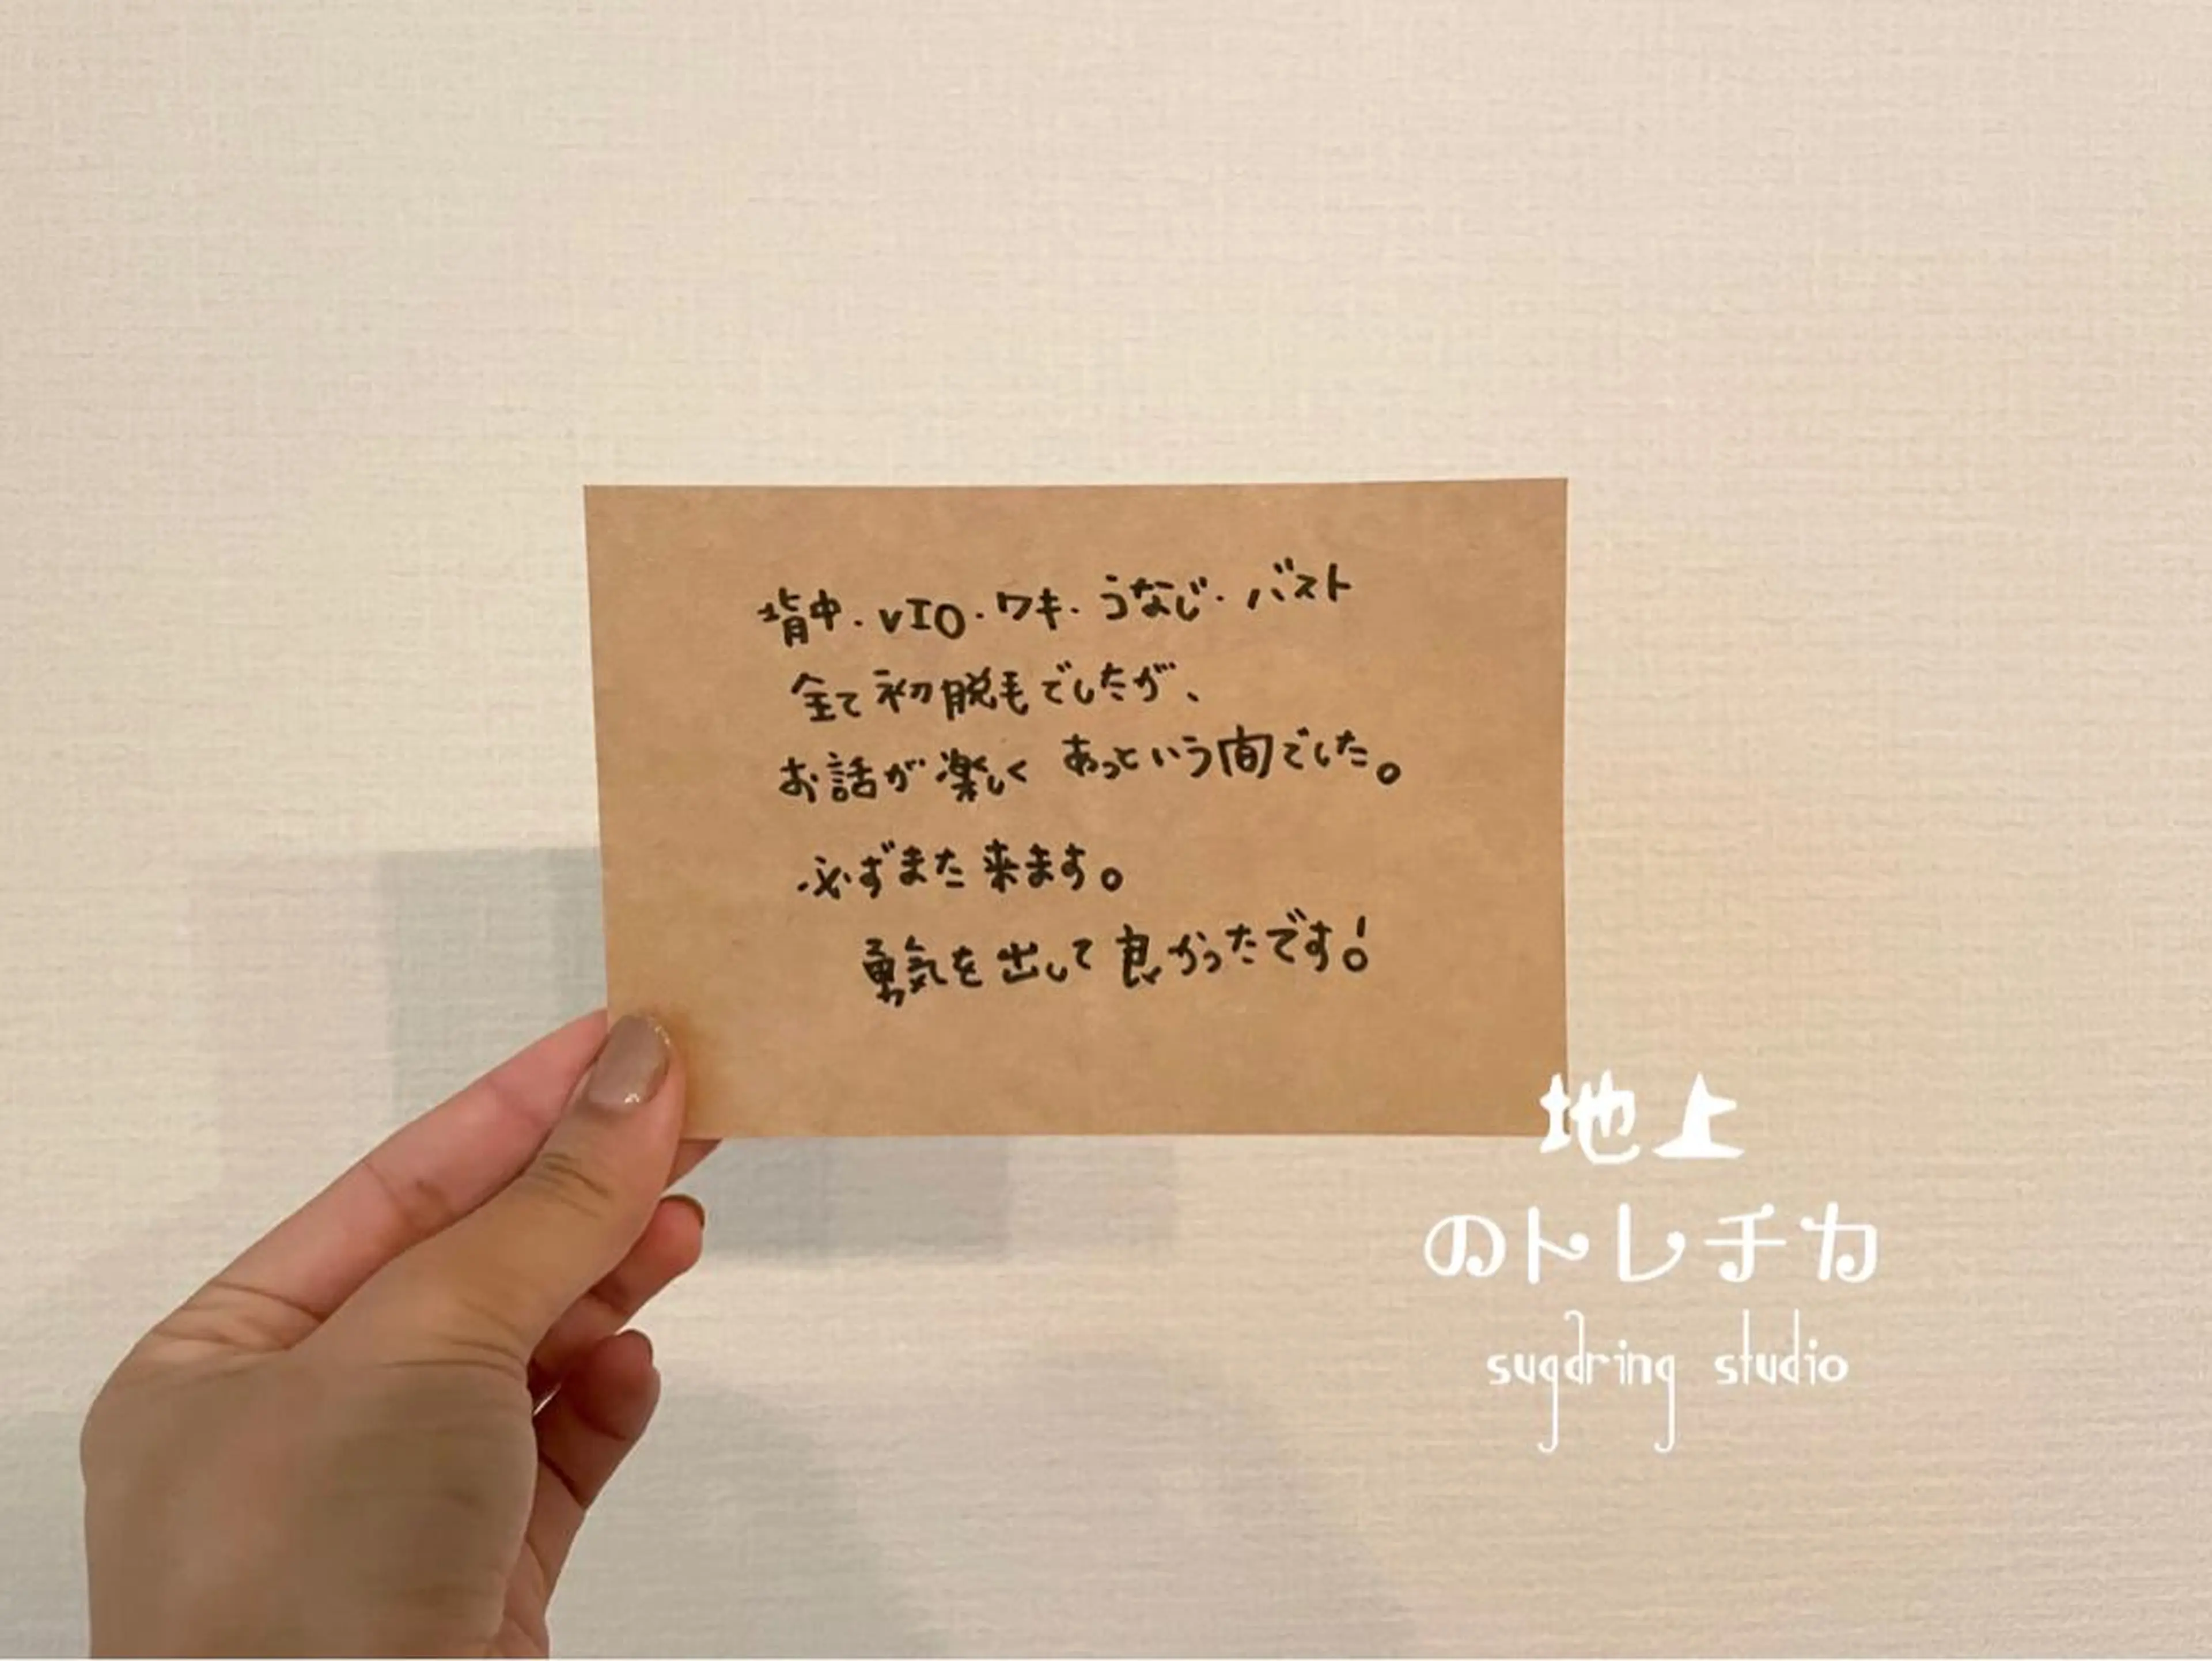 背中・VIO・ワキ・うなじ・バスト
全て初脱毛でしたが、
お話が楽しくあっという間でした。
必ずまた来ます。
勇気を出して良かったです!
地上
のトレチカ
sugdring studio